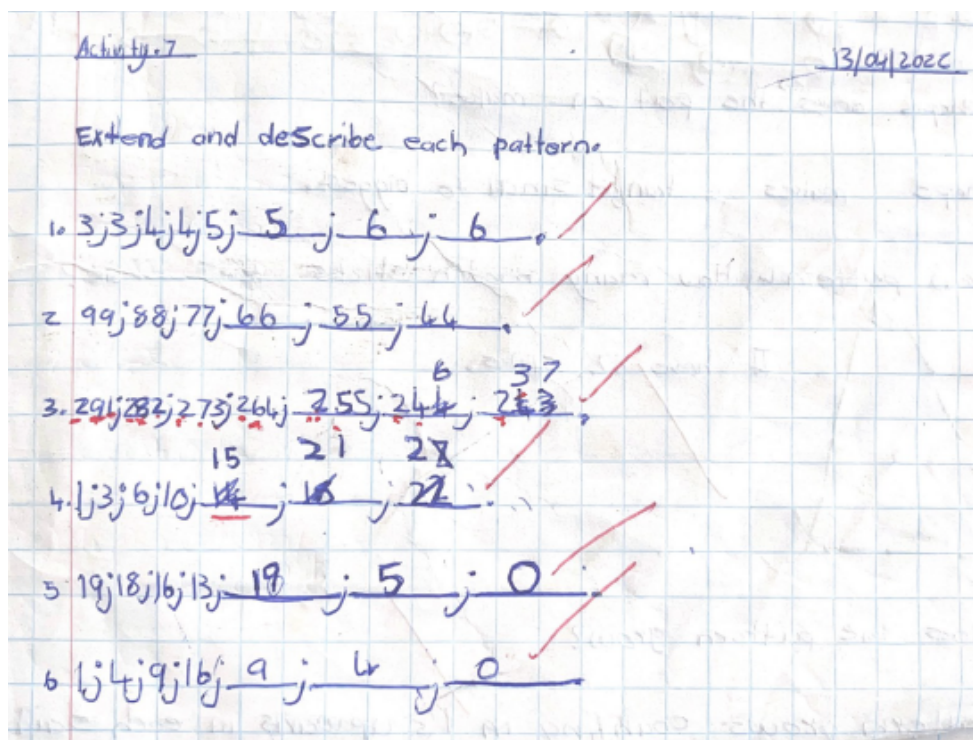 Activity.7
13/04/202
Extend and describe each pattern.
1. 3;3;4;4;5; 5 ; 6 ; 6 .
2 99;88;77; 66 ; 55 ; 44 .
6 3 7
3. 291;282;273;264; 255; 244 ; 2
15 21 2
4. 1;3;6;10; ; ; .
5 19;18;16;13; 19 ; 5 ; 0 .
6 1;4;9;16; 9 ; 4 ; 0